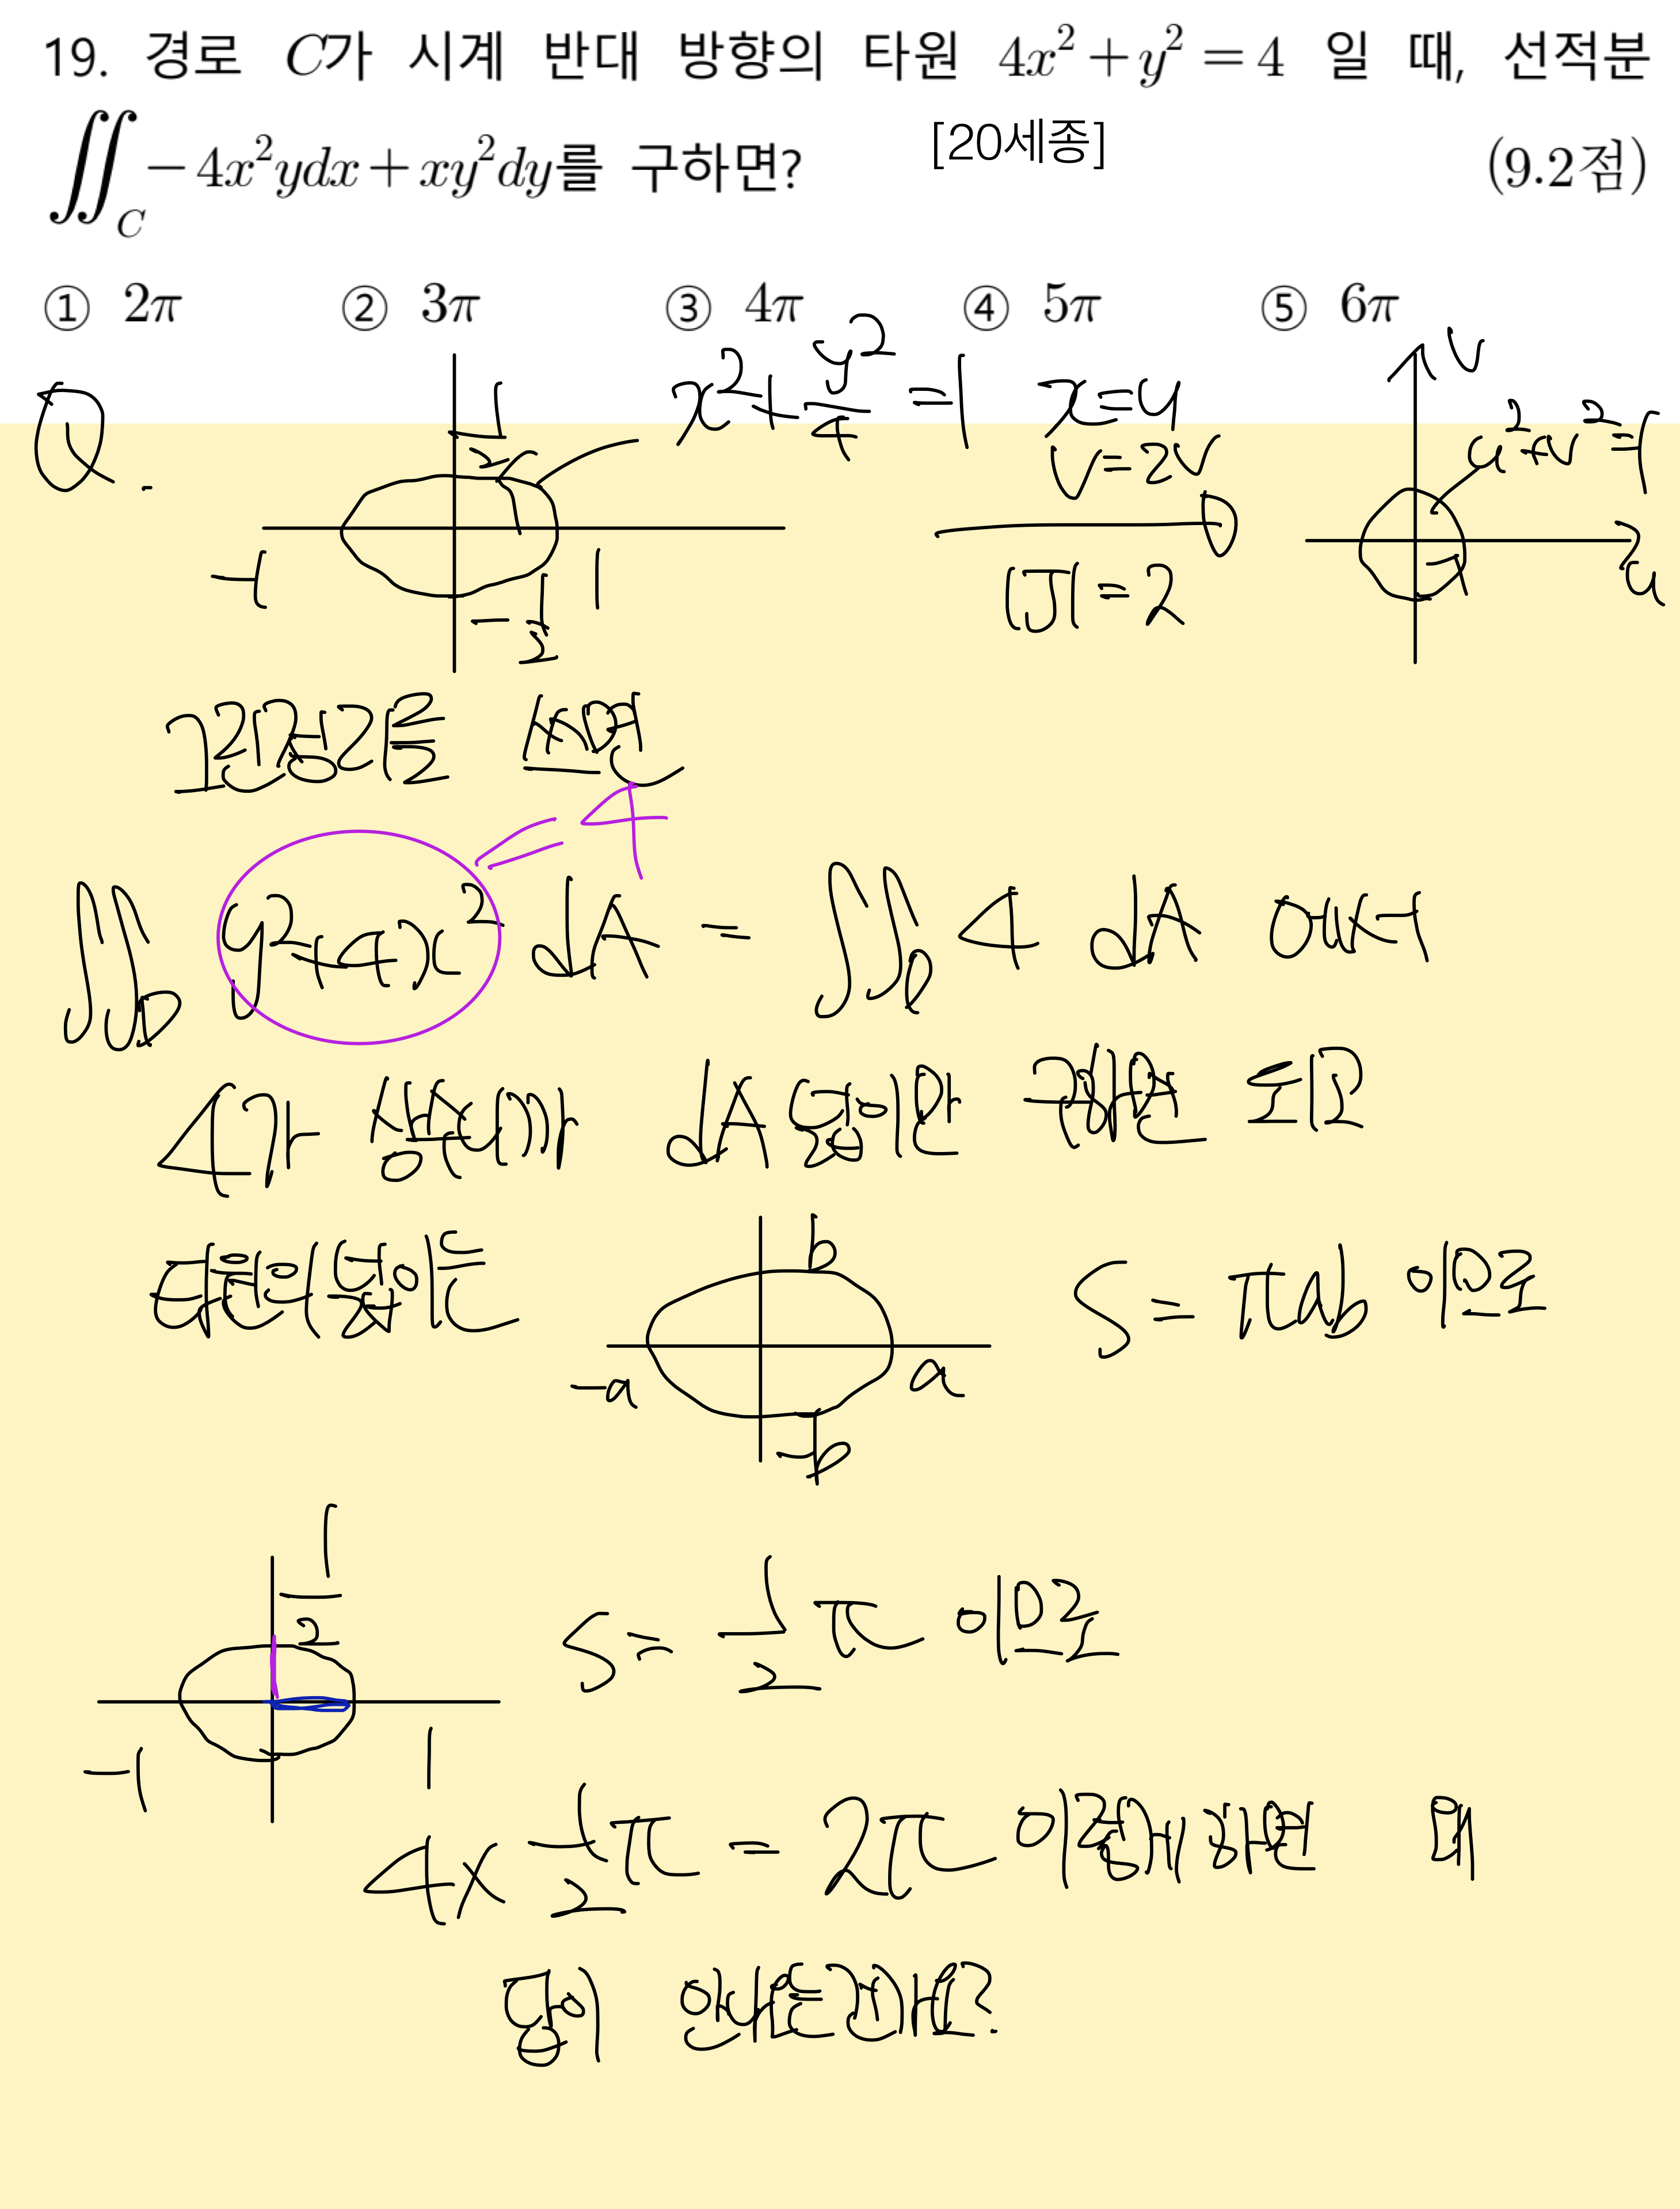 19. 경로 C가 시계 반대 방향의 타원 4x² + y² = 4 일 때, 선적분
∬_C − 4x²ydx + xy²dy를 구하면? [20세종] (9.2점)
① 2π ② 3π ③ 4π ④ 5π ⑤ 6π
Q.
x² + y²/4 = 1
x = u
v = 2v
|J| = 2
v
u² + v² = 1
u
1
1/2
-1
1
-1/2
그린정리를 쓰면
= 4
∬_D y² + 4x² dA = ∬_D 4 dA 에서
4가 상수
dA 넓이만 구하면
타원의 넓이는
b
-a
a
-b
S = πab 이므로
1/2
-1
1
S = 1/2 π 이므로
4 × 1/2 π = 2π 이렇게 하면 왜
답이 안나오는 건가요?